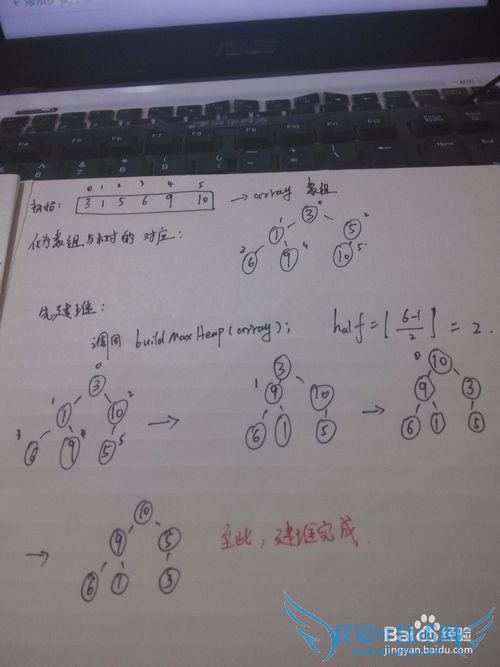 ASUS
0 1 2 3 4 5
初始: 3 1 5 6 9 10 → array 数组
化为数组与树的对应:
0
3
1 2
1 5
3 4 5
6 9 10
先建堆:
调用 buildMaxHeap(array); half = [6-1/2] = 2.
0
3
1 2
1 10
3 4 5
6 9 5
→
3
1
9 10
6 1 5
→
0
10
9 3
6 1 5
→
10
9 5
6 1 3
至此, 建堆完成.
Baidu 经验
jingyan.baidu.com